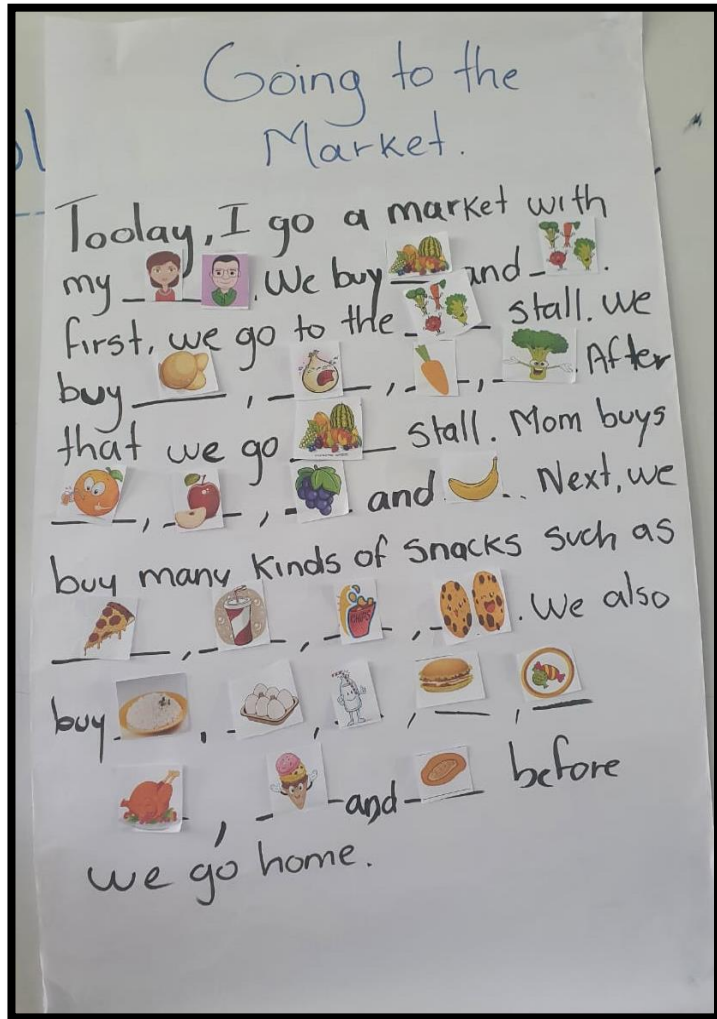 Going to the
Market.
Today, I go a market with
my _ _. We buy _ and _.
first, we go to the _ stall. we
buy _, _, _, _. After
that we go _ stall. Mom buys
_, _, _ and _. Next, we
buy many kinds of snacks such as
_, _, _, _. We also
buy _, _, _, _, _
_, _ and _ before
we go home.